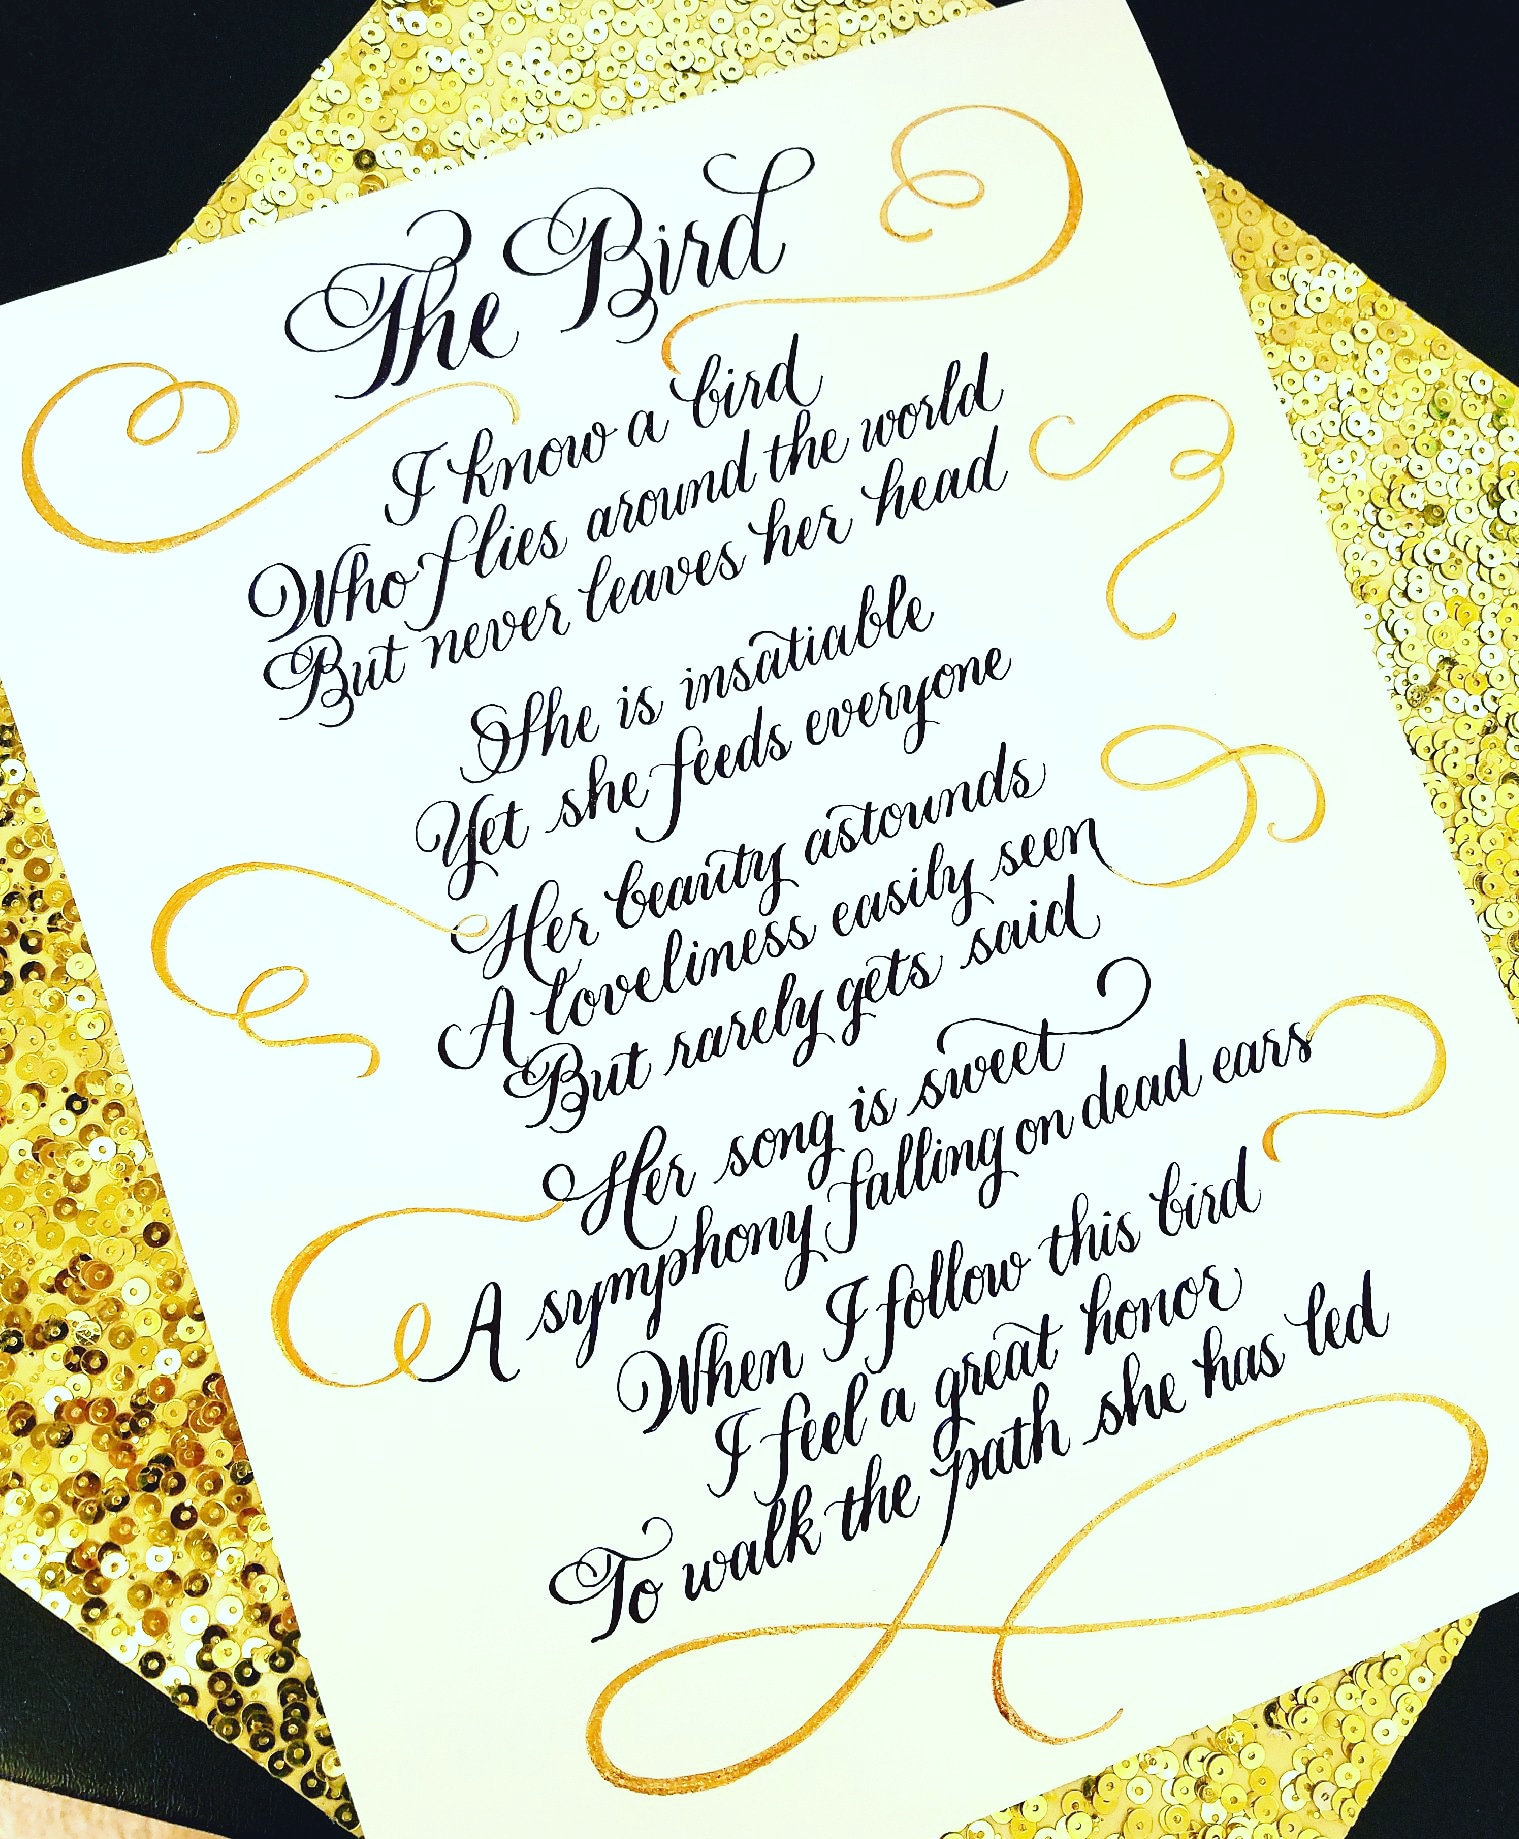 The Bird
I know a bird
Who flies around the world
But never leaves her head
She is insatiable
Yet she feeds everyone
Her beauty astounds
A loveliness easily seen
But rarely gets said
Her song is sweet
A symphony falling on dead ears
When I follow this bird
I feel a great honor
To walk the path she has led